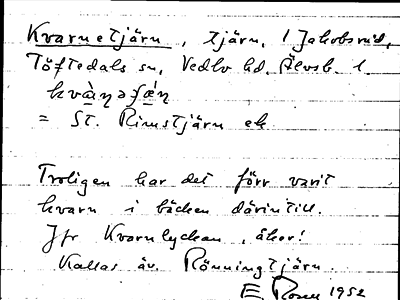 Kvarnetjärn, tjärn, i Jakobsrud,
Töftedals sn, Vedbo hd. Älvsb. l.
kvὰṇəʃæ̀ṇ
= St. Rimstjärn ek
Troligen har det förr varit
kvarn i bäcken därintill.
Jfr Kvarnlyckan, åker!
Kallas äv. Rönningtjärn.
E 1952